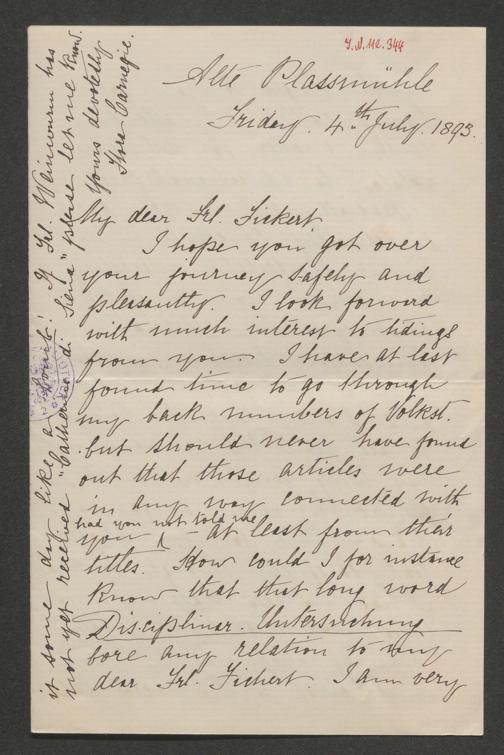 I.N. 112.344
Alte Plassmühle
Friday. 4.th July. 1893.
My dear Frl. Fickert
I hope you got over
your journey safely and
pleasantly. I look forward
with much interest to tidings
from you. I have at last
found time to go through
my back numbers of Volkst.
but should never have found
out that those articles were
in any way connected with
you had you not told me – at least from their
titles. How could I for instance
know that that long word
Disciplinar. Untersuchung
bore any relation to my
dear Frl. Fickert. I am very
it some day like a bomb! If Frl. Weinwurm has
not yet received "Catherina di Siena" please let me know.
Yours devotedly
Flora Carnegie.